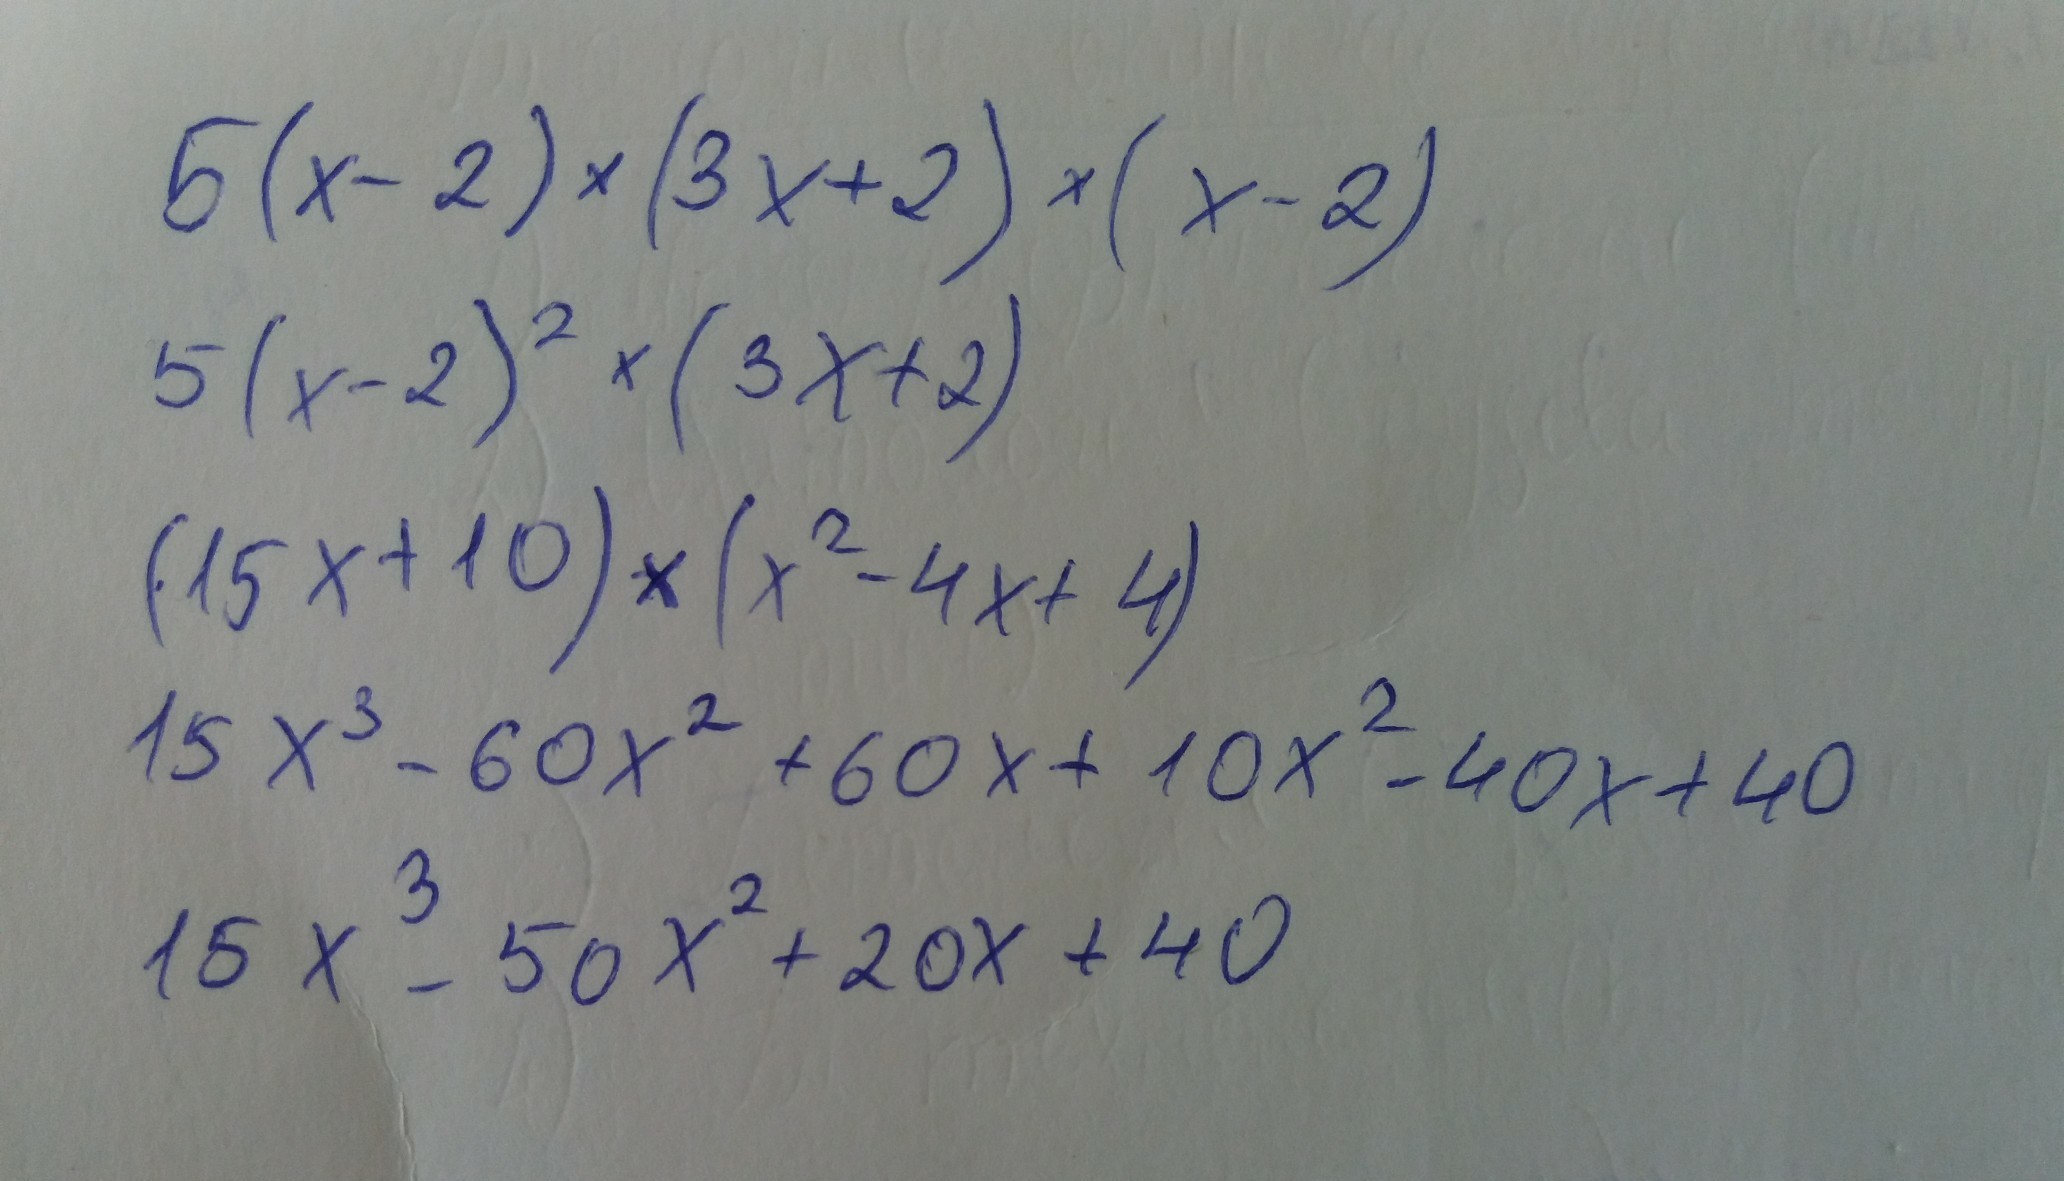 5(x-2)×(3x+2)×(x-2)
5(x-2)²×(3x+2)
(15x+10)×(x²-4x+4)
15x³-60x²+60x+10x²-40x+40
15x³-50x²+20x+40